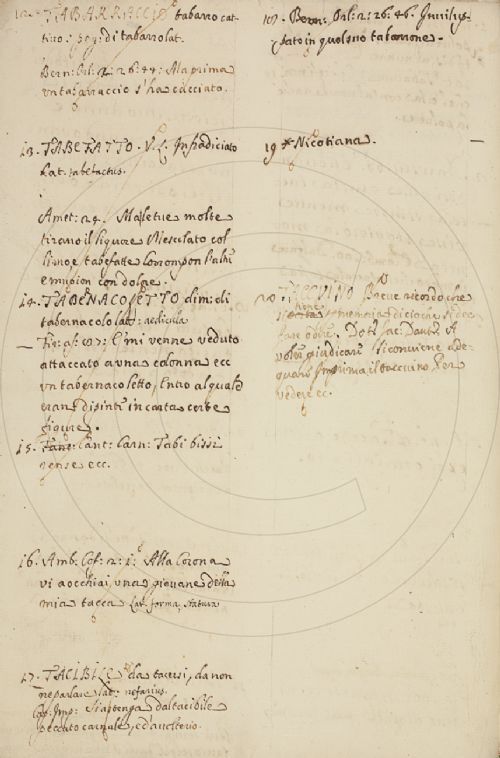 12. TABARRACCIO tabarro cat-
tivo: peg: di tabarro lat.
Bern: Orl: 2: 26: 44: Ma prima
un tabarraccio s'ha cacciato.
13. TABEFATTO. V. L. Infradiciato
Lat. tabefactus.
Amet: 24. Ma le tue molte
tirano il liquore Mescolato col
limo e tabefatte corrompon
e mupion con dolore.
14. TABERNACOLETTO dim: di
tabernacolo lat: aedicula
Fir: as: E mi venne veduto
attaccato a una colonna ecc
un tabernacoletto, Entro al quale
eran dipinti in carta certe
figure.
15. Cant: Carn: Tabi bissi
rense ecc.
16. Amb: Cof: 2: 1: Alla Corona
vi aocchiai, una giovane della
mia tacca Lat. forma, statura
17. TACIBILE da tacersi, da non
ne parlare lat: nefarius.
Cap. Imp: S'astenga dal tacibile
peccato carnale, ed'avolterio.
18. Bern: Orl: 2: 26: 46. Invilup-
pato in quel suo tabarrone.
19 * Nicotiana.
20. TACCUINO Breve ricordo che
memoria di cio che si dee
fare
voler giudicare si conviene ade-
guare Imprima il taccuino, Per
vedere ec.